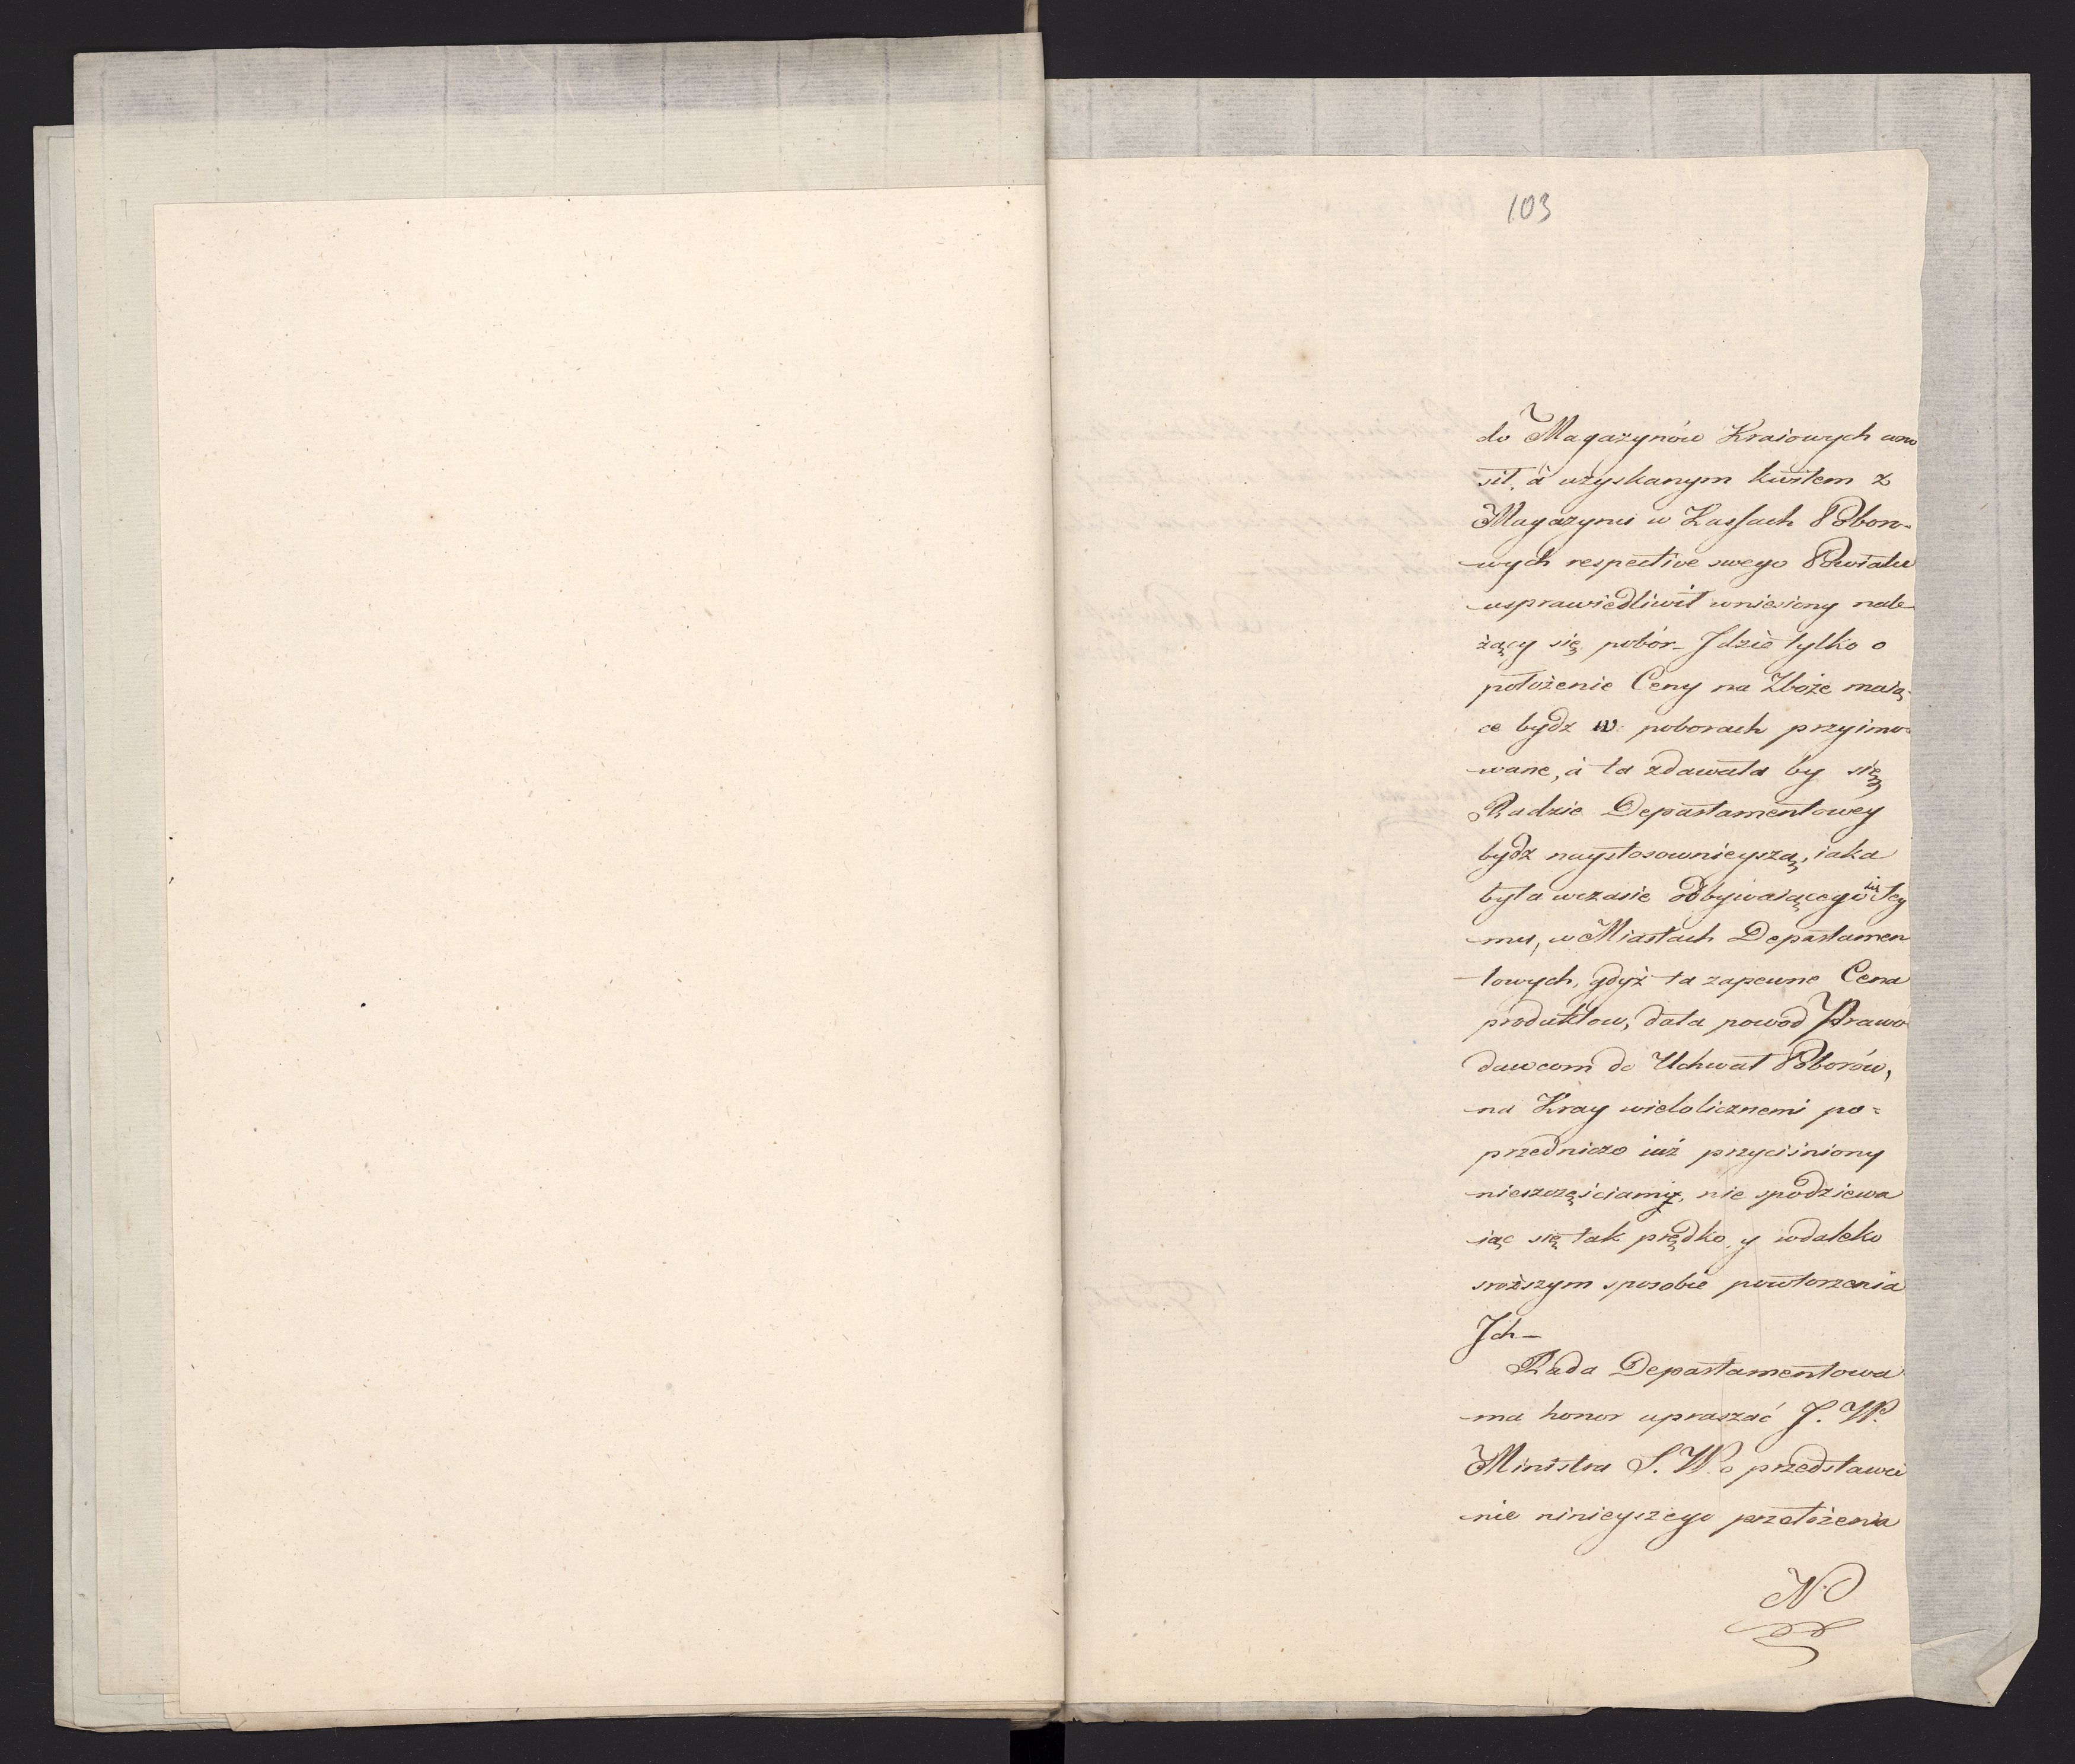 103
do Magazynów Kraiowych wno
sił, á uzyskanym kwitem z
Magazynu w Kassach Poboro-
wych respective swego Powiatu
usprawiedliwił wniesiony nale
żący się pobór_ Jdzie tylko o
położenie Ceny na Zboże maią-
ce bydz w poborach przyimo-
wane, á ta zdawała by się
Radzie Departamentowey
bydz naystosownieyszą, iaka
była wczasie odbywaiącego się Sey
mu, w Miastach Departamen
towych, gdyż ta zapewne Cena
produktow, dała powod Prawo
dawcom do Uchwał Poborów,
na Kray wielolicznemi po=
przedniczo iuż przyciśniony
nieszczęściamy, nie spodziewa
iąc się tak prędko y wdaleko
sroższym sposobie powtorzenia
Jch_
Rada Departamentowa
ma honor upraszać J. W.
Ministra S. W. o przedstawie
nie ninieyszego przełożenia
N